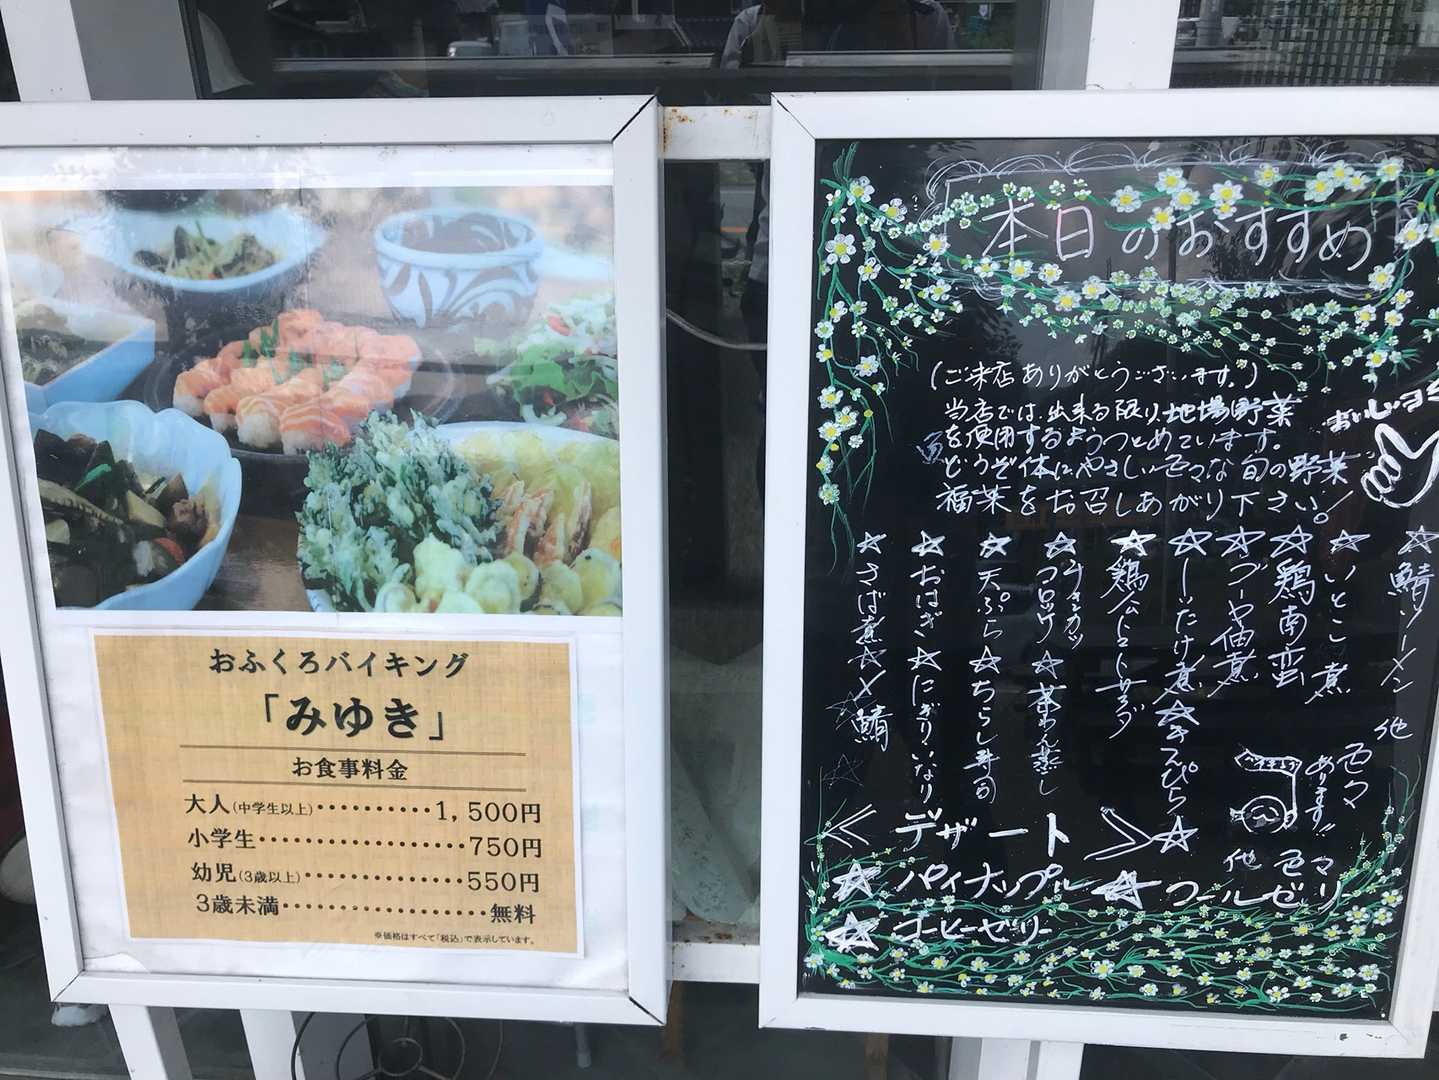 おふくろバイキング
「みゆき」
お食事料金
大人(中学生以上)··········1,500円
小学生··················750円
幼児(3歳以上)··············550円
3歳未満··················無料
※価格はすべて「税込」で表示しています。
本日のおすすめ
(ご来店ありがとうございます。)
当店では、出来る限り、地場野菜
を使用するようつとめています。
どうぞ体にやさしい色々な旬の野菜
福菜をお召しあがり下さい。
おいしいヨ
☆鯖ソーメン 他 色々
あります
☆いとこ煮
☆鶏南蛮
☆ゴーヤ佃煮
☆しいたけ煮☆きんぴら☆
☆鶏ハムトマトサラダ
☆メンチカツ
コロッケ☆茶わん蒸し
☆天ぷら☆ちらし寿司
☆おはぎ☆にぎり、いなり
☆さば煮☆〆鯖
デザート
他 色々
☆パイナップル☆コールゼリ
☆コーヒーゼリー